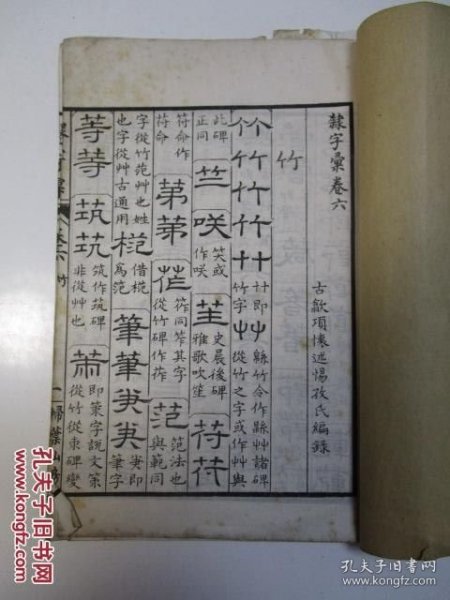 隸字彙卷六
古歙項懷述惕孜氏編錄
竹
竹竹竹竹廾竹字廿即艸縣竹令作縣艸諸碑從竹之字或作艸與
此碑正同竺咲笑或作咲笙史晨後碑雅歌吹笙符苻
符命作苻命第苐莋筰同其字從竹碑作莋范范法也與範同
字從竹范艸也姓也字從艸古通用借為范筆筆筆字
等等筑茿筑作茿碑非從艸也即策字說文策從竹從朿碑變
卷六 竹 一 掃葉山房
孔夫子旧书网
www.kongfz.com
孔夫子旧书网
www.kongfz.com